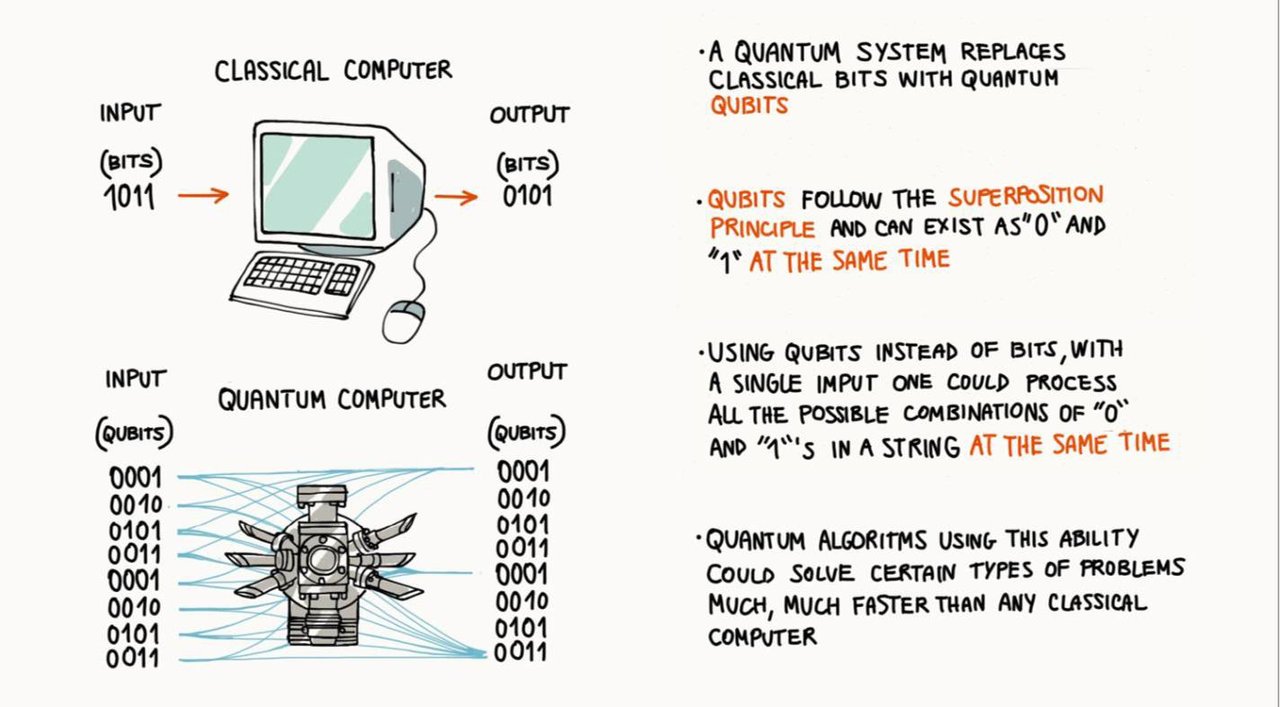 CLASSICAL COMPUTER
INPUT
(BITS)
1011
OUTPUT
(BITS)
0101
QUANTUM COMPUTER
INPUT
(QUBITS)
0001
0010
0101
0011
0001
0010
0101
0011
OUTPUT
(QUBITS)
0001
0010
0101
0011
0001
0010
0101
0011
·A QUANTUM SYSTEM REPLACES
CLASSICAL BITS WITH QUANTUM
QUBITS
·QUBITS FOLLOW THE SUPERPOSITION
PRINCIPLE AND CAN EXIST AS "0" AND
"1" AT THE SAME TIME
·USING QUBITS INSTEAD OF BITS, WITH
A SINGLE IMPUT ONE COULD PROCESS
ALL THE POSSIBLE COMBINATIONS OF "0"
AND "1"'S IN A STRING AT THE SAME TIME
·QUANTUM ALGORITMS USING THIS ABILITY
COULD SOLVE CERTAIN TYPES OF PROBLEMS
MUCH, MUCH FASTER THAN ANY CLASSICAL
COMPUTER